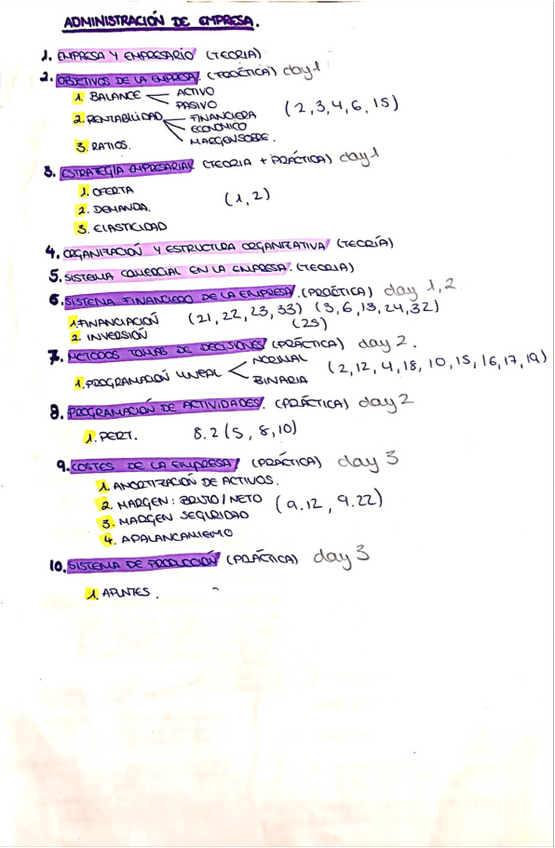 ADMINISTRACIÓN DE EMPRESA.
1. EMPRESA Y EMPRESARIO (TEORIA)
2. OBJETIVOS DE LA EMPRESA (PRÁCTICA) day 1
1. BALANCE ACTIVO
PASIVO (2, 3, 4, 6, 15)
2. RENTABILIDAD FINANCIERA
ECONÓMICO
3. RATIOS. MARGEN SOBRE.
3. ESTRATEGIA EMPRESARIAL (TEORIA + PRÁCTICA) day 1
1. OFERTA
2. DEMANDA. (1, 2)
3. ELASTICIDAD
4. ORGANIZACIÓN Y ESTRUCTURA ORGANITATIVA (TEORÍA)
5. SISTEMA COMERCIAL EN LA EMPRESA. (TEORIA)
6. SISTEMA FINANCIERO DE LA EMPRESA. (PRÁCTICA) day 1, 2
1. FINANCIACIÓN (21, 22, 23, 33) (3, 6, 13, 24, 32)
2. INVERSIÓN (25)
7. METODOS TOMAS DE DECISIONES (PRÁCTICA) day 2.
1. PROGRAMACIÓN LINEAL NORMAL (2, 12, 4, 18, 10, 15, 16, 17, 19)
BINARIA
8. PROGRAMACIÓN DE ACTIVIDADES. (PRÁCTICA) day 2
1. PERT. 8.2 (5, 8, 10)
9. COSTES DE LA EMPRESA (PRÁCTICA) day 3
1. AMORTIZACIÓN DE ACTIVOS.
2. MARGEN: BRUTO / NETO (9.12, 9.22)
3. MARGEN SEGURIDAD
4. APALANCAMIEMTO
10. SISTEMA DE PRODUCCIÓN (PRÁCTICA) day 3
1. APUNTES.